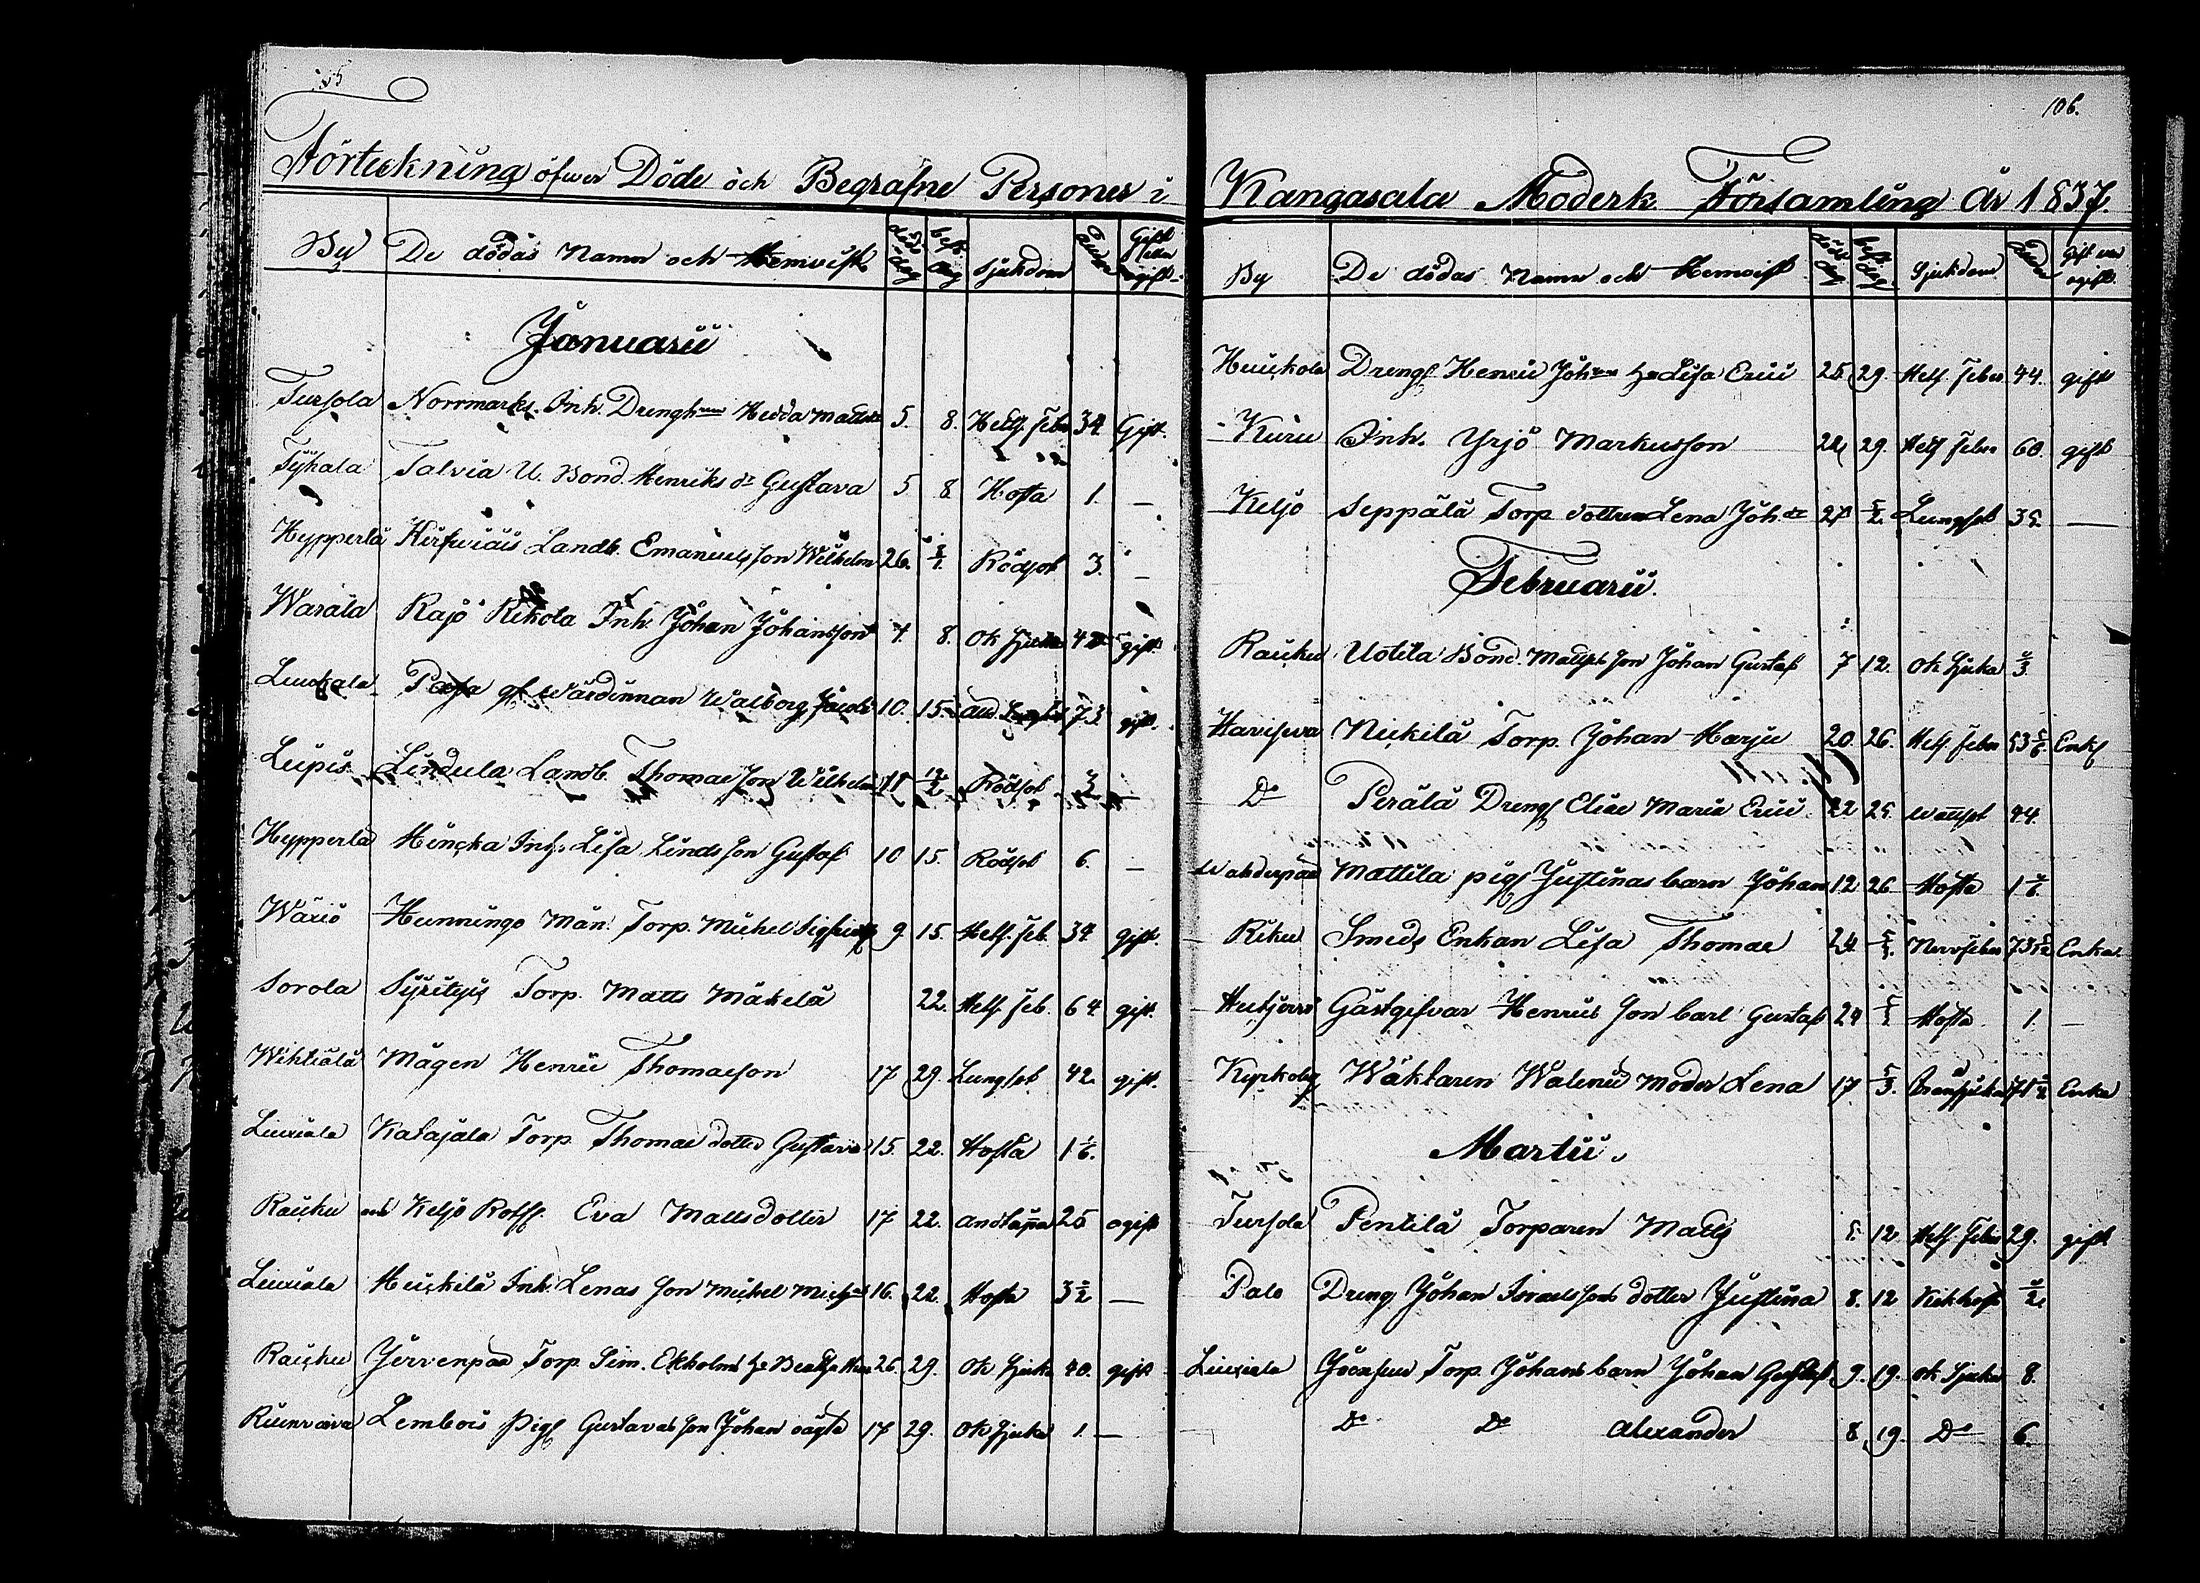 Förteckning öfwer Döde och Begrafne Personer i
By De dödas Namn och Hemvist döds dag begr. dag sjukdom ålder Gift eller ogift
Januarii
Tursola Norrmarks Inh. Drengh Hedda Matts 5. 8. Hetf. feber 34. Gift.
Tyhala Talvia U. Bond. Henriks dr Gustava 5 8 Hosta 1. —
Hypperlä Landb. Emanuels son Wilhelm 26. 8/1. Rödsot 3. —
Warala Rajo Rekola Inh. Johan Johansson 7. 8. Ok sjukd 42 gift.
Liuckala gl. Wärdinnan Walborg Jacobs 10. 15. 73. gift.
Leipis Lindula Landb. Thomae son Wilhelm 11 12/2 Rödsot —
Hypperlä Hincka Inh. Lisa Linds son Gustaf 10 15. Rödsot 6. —
Wäxiö Hunningo Män. Torp. Michel 9. 15. Hetf. feb. 34. gift.
Sorola Torp. Matts Mäkelä 22. Hetf. feb. 64. gift.
Wihtiälä Mågen Henric Thomaeson 17 29. Lungsot 42. gift.
Liuxiala Katajala Torp. Thomae dotter Gustava 15. 22. Hosta 1 1/6.
Raicku Keljo Rolff. Eva Mattsdotter 17 22. andtäppa 25 ogift
Liuxiala Heickilä Inh. Lenas son Michel 16. 22. Hosta 3 1/2 —
Raicku Jervenpää Torp. Sim. Ekholms h. 26. 29. Ok sjukd 40. gift
Lembois Pig. Gustavas son Johan oägta 17 29. Ok sjukd 1. —
106.
Kangasala Moderk Församling År 1837.
By De dödas Namn och Hemvist döds dag begr. dag Sjukdom ålder gift eller ogift.
Huickola Dreng. Henric Joh h. Lisa Erici 25 29. Hetf feber 44. gift
Kuru Inh. Yrjö Markusson 22 29. Hetf feber 60. gift
Keljo Seppälä Torp dottren Lena Joh. dr 27 5/2. Lungsot 35. —
Februarii.
Raicku Uotila Bond. Matts son Johan Gustaf 7 12. Ok sjukd
Havisewa Nickilä Torp. Johan Harju 20. 26. Hetf feber 53 Enkl
Do Perälä Dreng Eliae Maria Erici 22 25. Wattsot 44.
Wahderpää Mattila pig. Justinas barn Johan 12 26 Hosta 1
Riku Smeds Enkan Lisa Thomae 24. Nervfeber 73 Enka
Gästgifvar Henrics son Carl Gustaf 24 Hosta 1. —
Kyrkoby Wäktaren Moder Lena 17. 5/3. 71 Enka
Martii.
Tursola Pentilä Torparen Matts 5. 12 Hetf feber 29. gift
Palo Dreng Johan Israels sons dotter Justina 8. 12 Kikhost
Liuxiala Torp. Johans barn Johan Gustaf 9. 19. Ok sjukd 8.
Do Do Alexander 8. 19. Do 6.